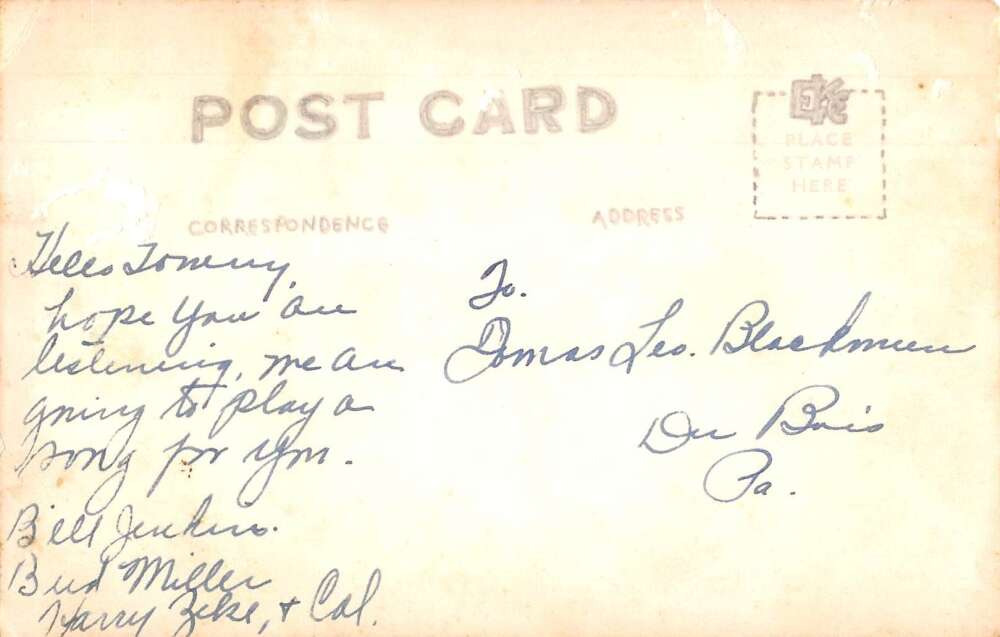 POST CARD
EKC
PLACE
STAMP
HERE
CORRESPONDENCE
ADDRESS
Hello Tommy,
hope You are
listening, we are
going to play a
song for you.
Bill Jenkins.
Bud Miller
Harry Zeke, + Cal.
To.
Tomas Leo. Blackmun
Du Bois
Pa.